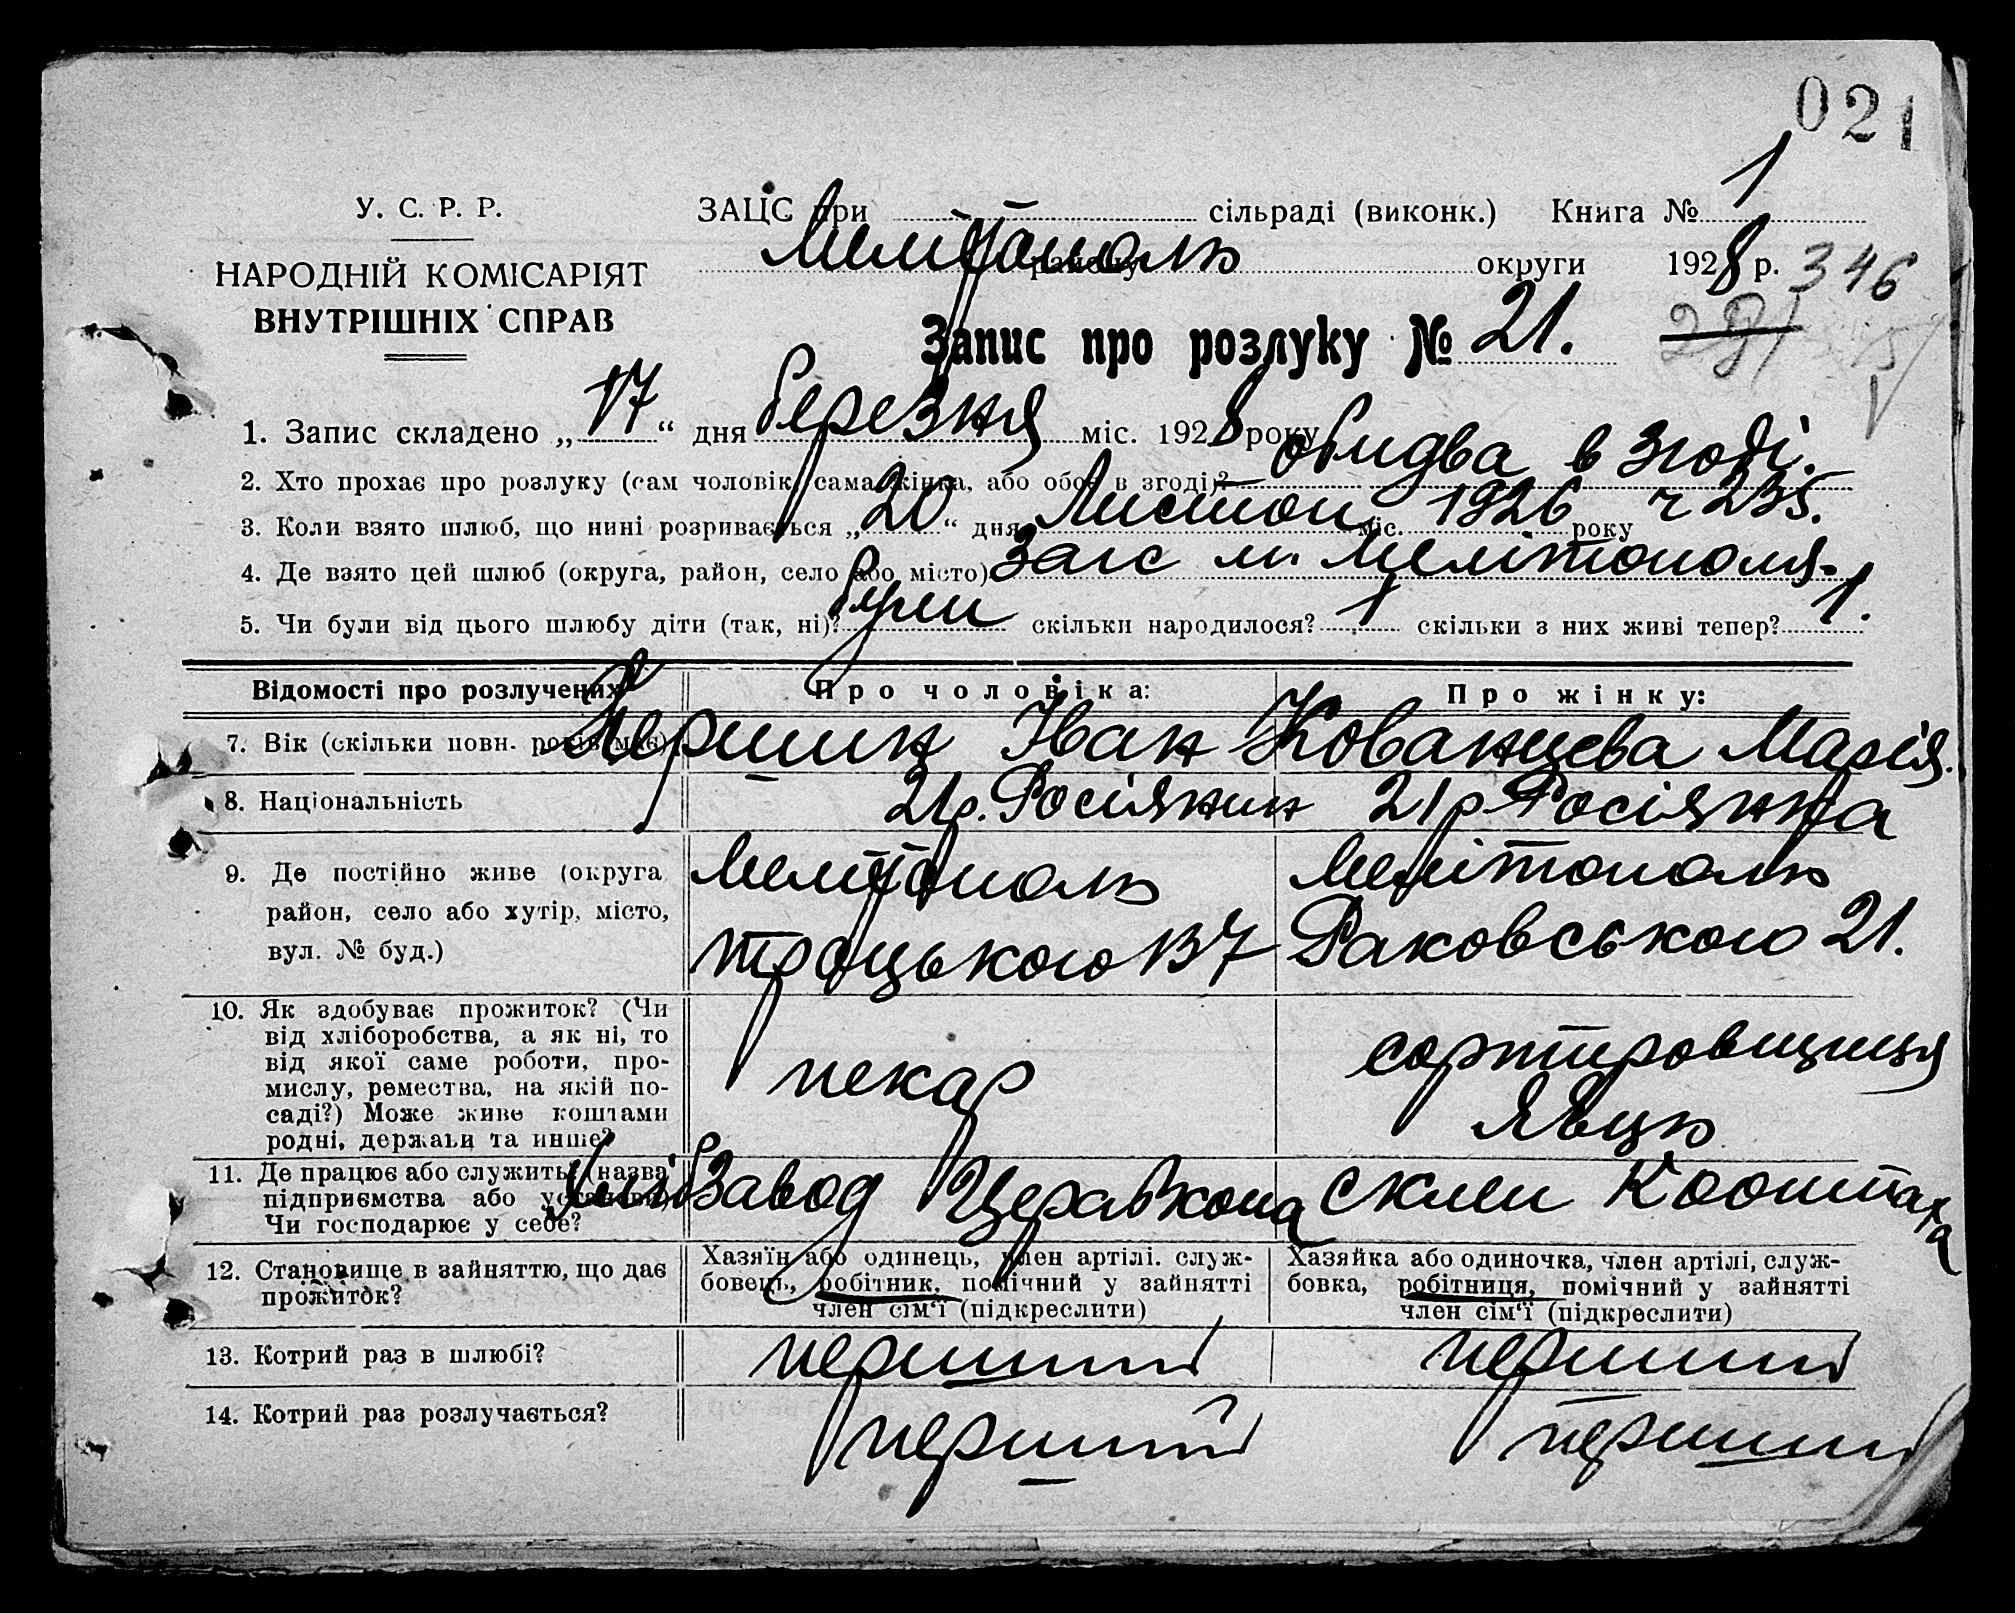 021
У. С. Р. Р.
НАРОДНІЙ КОМІСАРІЯТ
ВНУТРІШНІХ СПРАВ
ЗАЦС при сільраді (виконк.) Книга № 1
Мелітополь району округи 1928 р. 346
281
Запис про розлуку № 21.
1. Запис складено „17“ дня березня міс. 1928 року
2. Хто прохає про розлуку (сам чоловік, сама жінка, або обоє в згоді)? обидва в згоді.
3. Коли взято шлюб, що нині розривається „20“ дня Листоп міс. 1926 року ч 235.
4. Де взято цей шлюб (округа, район, село або місто) Загс м. Мелітополя.
5. Чи були від цього шлюбу діти (так, ні)? були скільки народилося? 1 скільки з них живі тепер? 1.
Відомості про розлучених Про чоловіка: Про жінку:
Іван Кованцева Марія.
7. Вік (скільки повн. років має)
8. Національність 21р. Росіянин 21р Росіянка
9. Де постійно живе (округа район, село або хутір, місто, вул. № буд.)
Мелітополь
Троцького 137
Мелітополь
Раковського 21.
10. Як здобуває прожиток? (Чи
від хліборобства, а як ні, то
від якої саме роботи, про-
мислу, ремества, на якій по-
саді?) Може живе коштами
родні, держави та инше?
пекар
сортировщиця
Яєць
11. Де працює або служить (назва
підприємства або установи)
Чи господарює у себе?
Хлібзавод Церабкопа
склеп
12. Становище в зайняттю, що дає
прожиток?
Хазяїн або одинець, член артілі. служ-
бовець, робітник, помічний у зайнятті
член сім'ї (підкреслити)
Хазяйка або одиночка, член артілі, служ-
бовка, робітниця, помічний у зайнятті
член сім'ї (підкреслити)
13. Котрий раз в шлюбі? перший перший
14. Котрий раз розлучається? перший перший